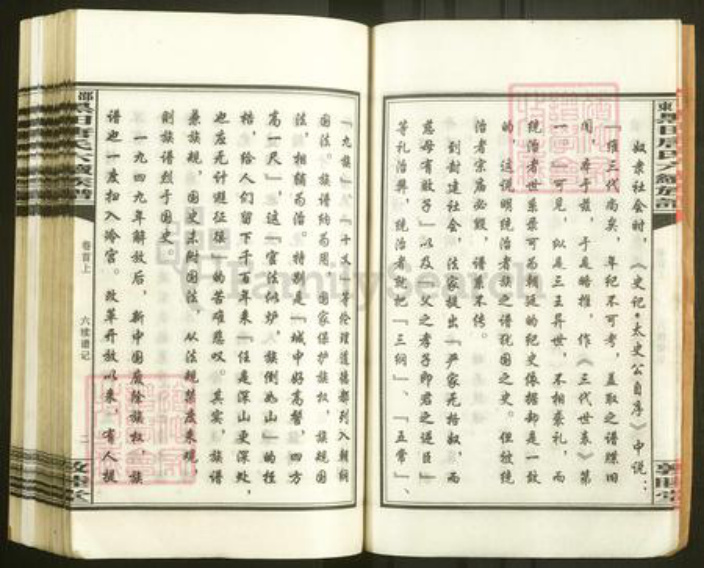 奴隶社会时，《史记·太史公自序》中说：
“维三代尚矣，年纪不可考，盖取之谱牒旧
闻，本于兹，于是略推，作《三代世表》第
一。”可见，纵是三王异世，不相袭礼，而
统治者世系录可为朝廷的纪史依据却是一致
的，这说明统治者族之谱犹国之史。但被统
治者宗庙必毁，谱系不传。
到封建社会，法家提出“严家无格奴，而
慈母有败子”以及“父之孝子即君之逆臣”
等礼治弊，统治者就把“三纲”、“五常”、
“九族”、“十义”等伦理道德都列入朝纲
国法。族谱纳为用，国家保护族权，族规国
法，相辅为治。特别是“城中好高髻，四方
高一尺”，这“官法似炉，族倒如山”的桎
梏，给人们留下千百年来“任是深山更深处，
也应无计避征徭”的苦难悲叹。其实，族谱
兼族规，国史未附国法，从法规禁废来观，
则族谱烈于国史。
一九四九年解放后，新中国废除族权，族
谱也一度扫入冷宫。改革开放以来，有人提
卷首上
六续谱记
二
敦睦堂
FamilySearch